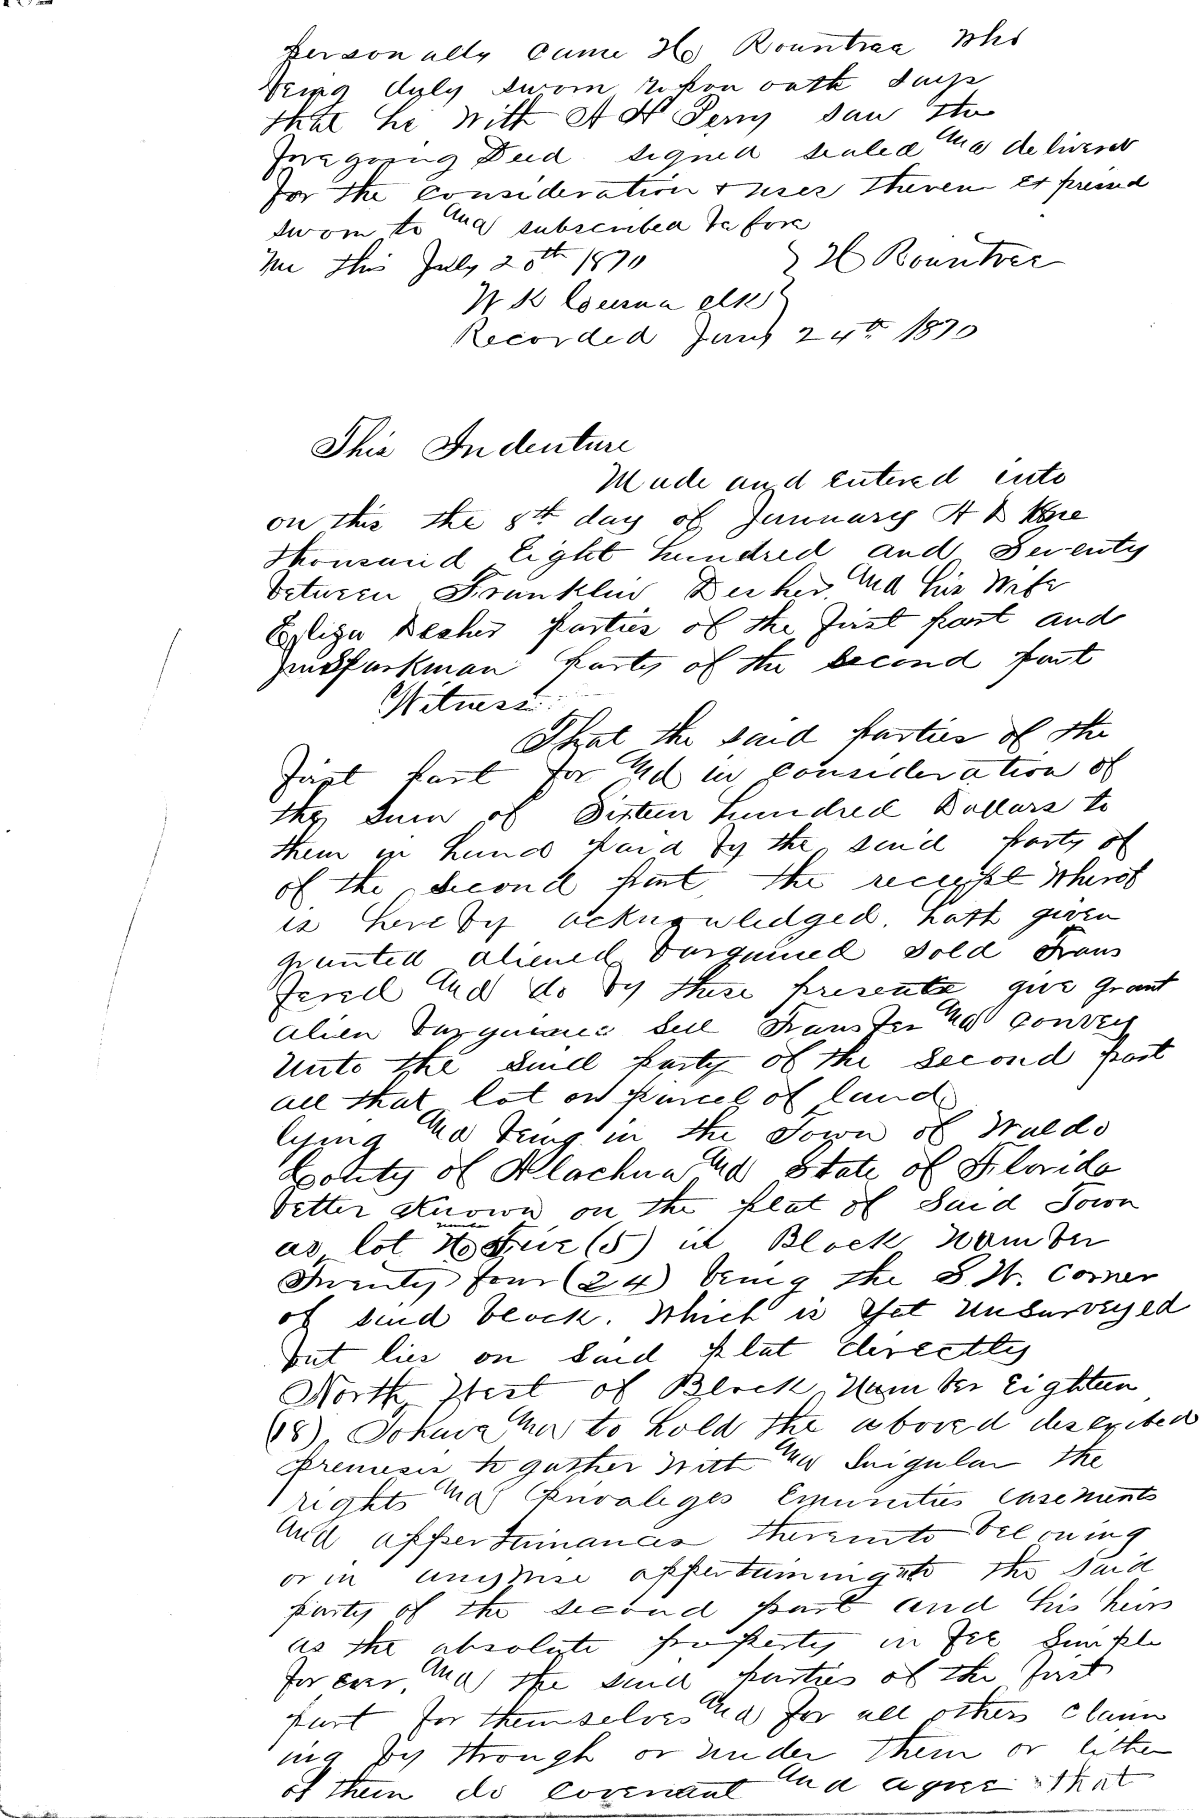 personally came H Rountree Who
being duly sworn upon oath says
that he With A H Perry saw the
foregoing Deed signed sealed and delivered
for the consideration & uses therein expressed
sworn to and subscribed before
me this July 20th 1870 } H Rountree
W K clk }
Recorded 24th 1870
This Indenture
Made and entered into
on this the 8th day of Januuary A D One
thousand Eight hundred and Seventy
between Franklin and his Wife
Eliza parties of the first part and
Jno Sparkman party of the second part
Witness
That the said parties of the
first part for and in consideration of
the sum of Sixteen hundred Dollars to
them in hand paid by the said party of
of the second part the receipt Wherof
is hereby acknowledged. hath given
granted aliened bargained sold Trans
fered and do by these presents give grant
alien bargaine sell Transfer and convey
Unto the said party of the second part
all that lot or parcel of land
lying and being in the Town of Waldo
Conty of Alachua and State of Florida
better Known on the plat of Said Town
as lot number Five (5) in Block Number
Twenty four (24) being the S.W. Corner
of said block. Which is Yet Unsurveyed
but lies on Said plat directly
North West of Block Number Eighteen
(18). To have and to hold the aboved described
premises to gather With and Singular the
rights and privaleges Emunities easements
and appertainances thereunto beloning
or in anywise appertaining to the Said
party of the second part and his heirs
as the absolute property in Fee Simple
for ever, and the said parties of the first
part for themselves and for all others claim
ing by through or under them or either
of them do covenant and agree that